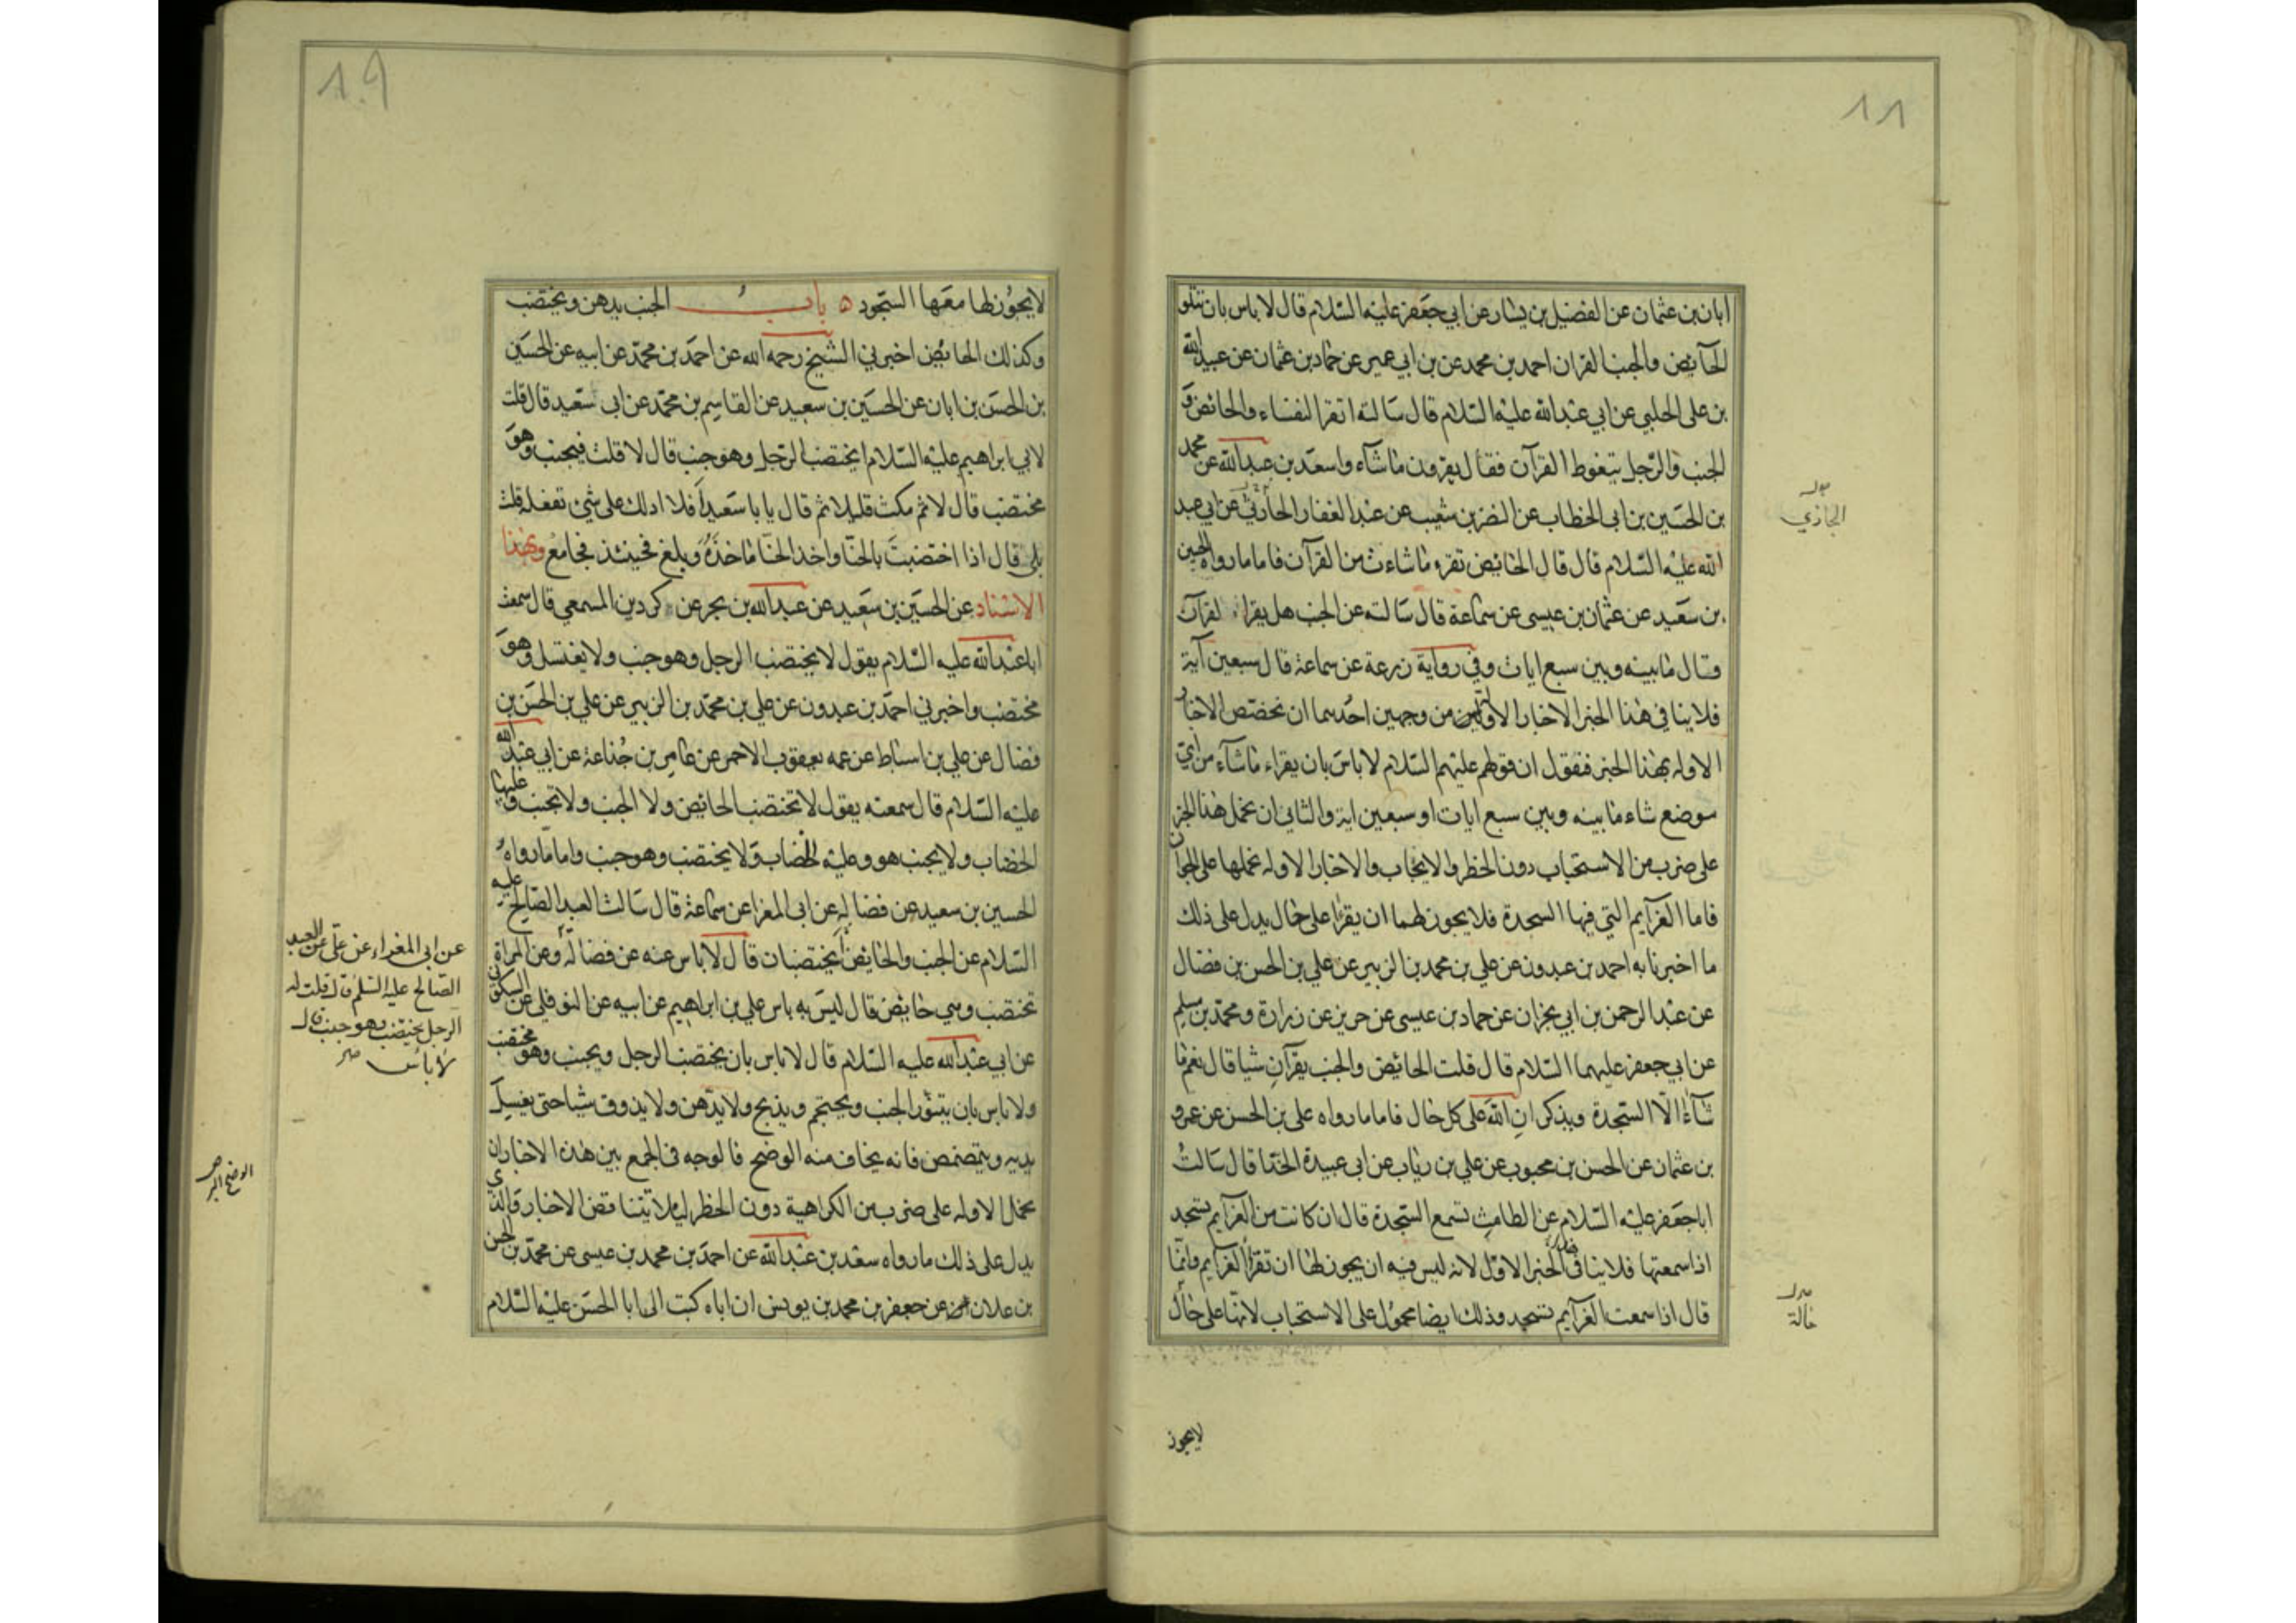 ١٨
ابان بن عثمان عن الفضيل بن يسار عن ابي جعفر عليه السلام قال لا باس بان تتلو
الحايض والجنب القران احمد بن محمد عن بن ابي عمير عن حماد بن عثمان عن عبيد الله
بن على الحلبي عن ابي عبد الله عليه السلام قال سالته اتقرا النفساء والحائض و
الجنب والرجل يتغوط القرآن فقال يقرؤن ما شآء واسعد بن عبد الله عن محمد
بن الحسين بن ابى الخطاب عن النضر بن شعيب عن عبد الغفار الحارثي عن ابي عبد
الله عليه السلام قال قال الحائض تقرو ما شاءت من القرآن فاما ما رواه الحسين
بن سعيد عن عثمان بن عيسى عن سماعة قال سالته عن الجنب هل يقراء القرآن
وقال ما بينه وبين سبع ايات وفي رواية زرعة عن سماعة قال سبعين آية
فلا ينافي هذا الخبر الاخبار الاولين من وجهين احدهما ان نخصص الاخبار
الاوله بهذا الخبر فنقول ان قولهم عليهم السلام لا باس بان يقراء ما شآء من اي
موضع شاء ما بينه وبين سبع ايات او سبعين اية والثاني ان نحمل هذا الخبر
على ضرب من الاستحباب دون الحظر والايجاب والاخبار الاوله نحملها على الجواز
فاما العزآيم التي فيها السجدة فلا يجوز لهما ان يقرا على حال يدل على ذلك
ما اخبرنا به احمد بن عبدون عن علي بن محمد بن الزبير عن علي بن الحسن بن فضال
عن عبد الرحمن بن ابي نجران عن حماد بن عيسى عن حريز عن زرارة ومحمد بن مسلم
عن ابي جعفر عليهما السلام قال قلت الحائض والجنب يقرآن شيا قال نعم ما
شآءا الا السجدة ويذكران الله على كل حال فاما ما رواه علي بن الحسن عن عمرو
بن عثمان عن الحسن بن محبوب عن علي بن رياب عن ابي عبيدة الحذا قال سالت
ابا جعفر عليه السلام عن الطامث تسمع السجدة قال ان كانت من العزآيم تسجد
اذا سمعتها فلا ينافي الخبر الاول لانه ليس فيه ان يجوز لها ان تقرا العزآيم وانما
قال اذا سمعت العزآيم تسجد وذلك ايضا محمول على الاستحباب لانها على حال
الجازي
حالة
لا يجوز
١٩
لا يجوز لها معها السجود ٥ باب الجنب يدهن ويختضب
وكذلك الحائض اخبرني الشيخ رحمه الله عن احمد بن محمد عن ابيه عن الحسين
بن الحسن بن ابان عن الحسين بن سعيد عن القاسم بن محمد عن ابى سعيد قال قلت
لابي ابراهيم عليه السلام ايختضب الرجل وهو جنب قال لا قلت فيجنب وهو
مختضب قال لا ثم مكث قليلا ثم قال يا با سعيد افلا ادلك على شئ تفعله قلت
بلى قال اذا اختضبت بالحنا واخذ الحنا ماخذه وبلغ فحينئذ فجامع وبهذا
الاسناد عن الحسين بن سعيد عن عبد الله بن بحر عن كردين المسمعي قال سمعت
ابا عبد الله عليه السلام يقول لا يختضب الرجل وهو جنب ولا يغتسل وهو
مختضب واخبرني احمد بن عبدون عن علي بن محمد بن الزبير عن علي بن الحسن بن
فضال عن علي بن اسباط عن عمه يعقوب الاحمر عن عامر بن جذاعة عن ابي عبد الله
عليه السلام قال سمعته يقول لا تختضب الحائض ولا الجنب ولا تجنب وعليها
الخضاب ولا يجنب هو وعليه الخضاب ولا يختضب وهو جنب واما ما رواه
الحسين بن سعيد عن فضاله عن ابى المغرا عن سماعة قال سالت العبد الصالح عليه
السلام عن الجنب والحايض ايختضبان قال لا باس عنه عن فضالة وعن المراة
تختضب وهي حايض قال ليس به باس علي بن ابراهيم عن ابيه عن النوفلي عن السكوني
عن ابي عبد الله عليه السلام قال لا باس بان يختضب الرجل ويجنب وهو مختضب
ولا باس بان يتنور الجنب ويحتجم ويذبح ولا يدهن ولا يذوق شيا حتى يغسل
يديه ويتمضمض فانه يخاف منه الوضح فالوجه في الجمع بين هذه الاخبار ان
نحمل الاوله على ضرب من الكراهية دون الحظر ليلا تتناقض الاخبار والذي
يدل على ذلك ما رواه سعد بن عبد الله عن احمد بن محمد بن عيسى عن محمد بن الحسن
بن علان عن جعفر بن محمد بن يونس ان اباه كتب الى ابا الحسن عليه السلام
عن ابى المغراء عن علي عن العبد
الصالح عليه السلم قال قلت له
الرجل يختضب وهو جنب قال
لا باس
الوضح البر